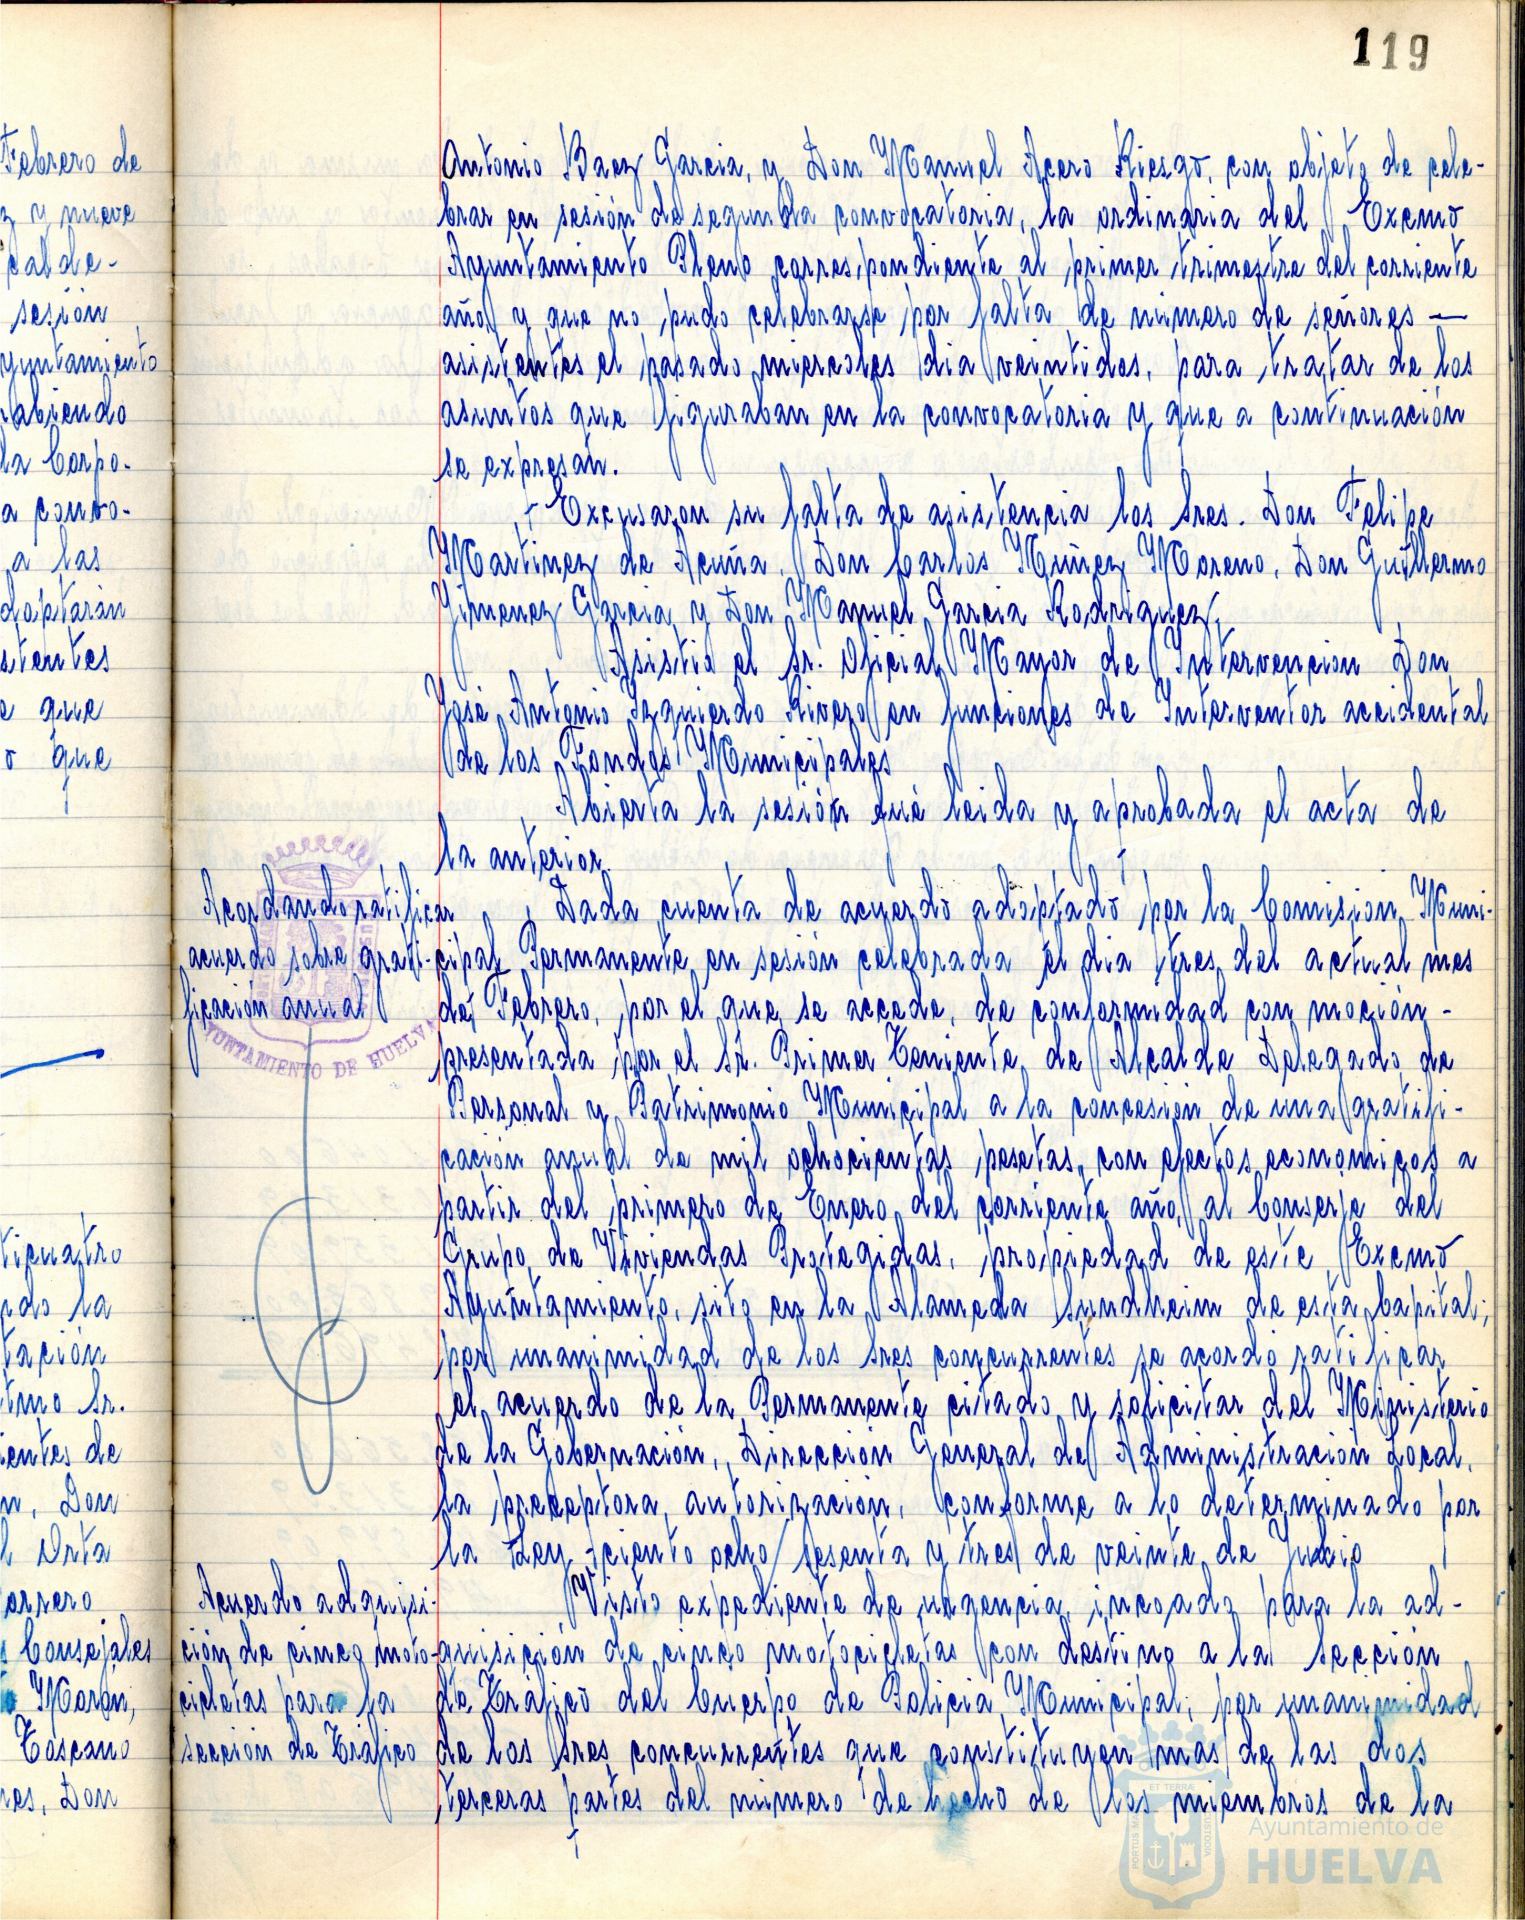 119
Febrero de
y nueve
calde-
sesión
yuntamiento
abiendo
la Corpo-
a convo-
a las
doptarán
stentes
e que
o que
ticuatro
ndo la
tación
tmo Sr.
ientes de
n, Don
l Orta
orrero
s Consejales
Morón,
Toscano
res, Don
Antonio Baez Garcia, y Don Manuel Acero Riesgo, con objeto de cele-
brar en sesión de segunda convocatoria, la ordinaria del Excmo
Ayuntamiento Pleno correspondiente al primer trimestre del corriente
año y que no pudo celebrarse por falta de numero de señores —
asistentes el pasado miercoles dia veintidos, para tratar de los
asuntos que figuraban en la convocatoria y que a continuación
se expresan.
Excusaron su falta de asistencia los Sres. Don Felipe
Martinez de Acuña, Don Carlos Muñez Moreno, Don Guillermo
Jimenez Garcia y Don Manuel Garcia Rodriguez,
Asistio el Sr. Oficial Mayor de Intervencion Don
José Antonio Izquierdo Rivero en funciones de Interventor accidental
de los Fondos Municipales
Abierta la sesión fué leida y aprobada el acta de
la anterior.
Acordando ratificar
acuerdo sobre grati-
ficación anual
AYUNTAMIENTO DE HUELVA
Dada cuenta de acuerdo adoptado por la Comision Muni-
cipal Permanente en sesión celebrada el dia tres del actual mes
de Febrero, por el que se accede, de conformidad con moción-
presentada por el Sr. Primer Teniente de Alcalde Delegado de
Personal y Patrimonio Municipal a la concesión de una gratifi-
cación anual de mil ochocientas pesetas, con efectos economicos a
partir del primero de Enero del corriente año, al Conserje del
Grupo de Viviendas Protegidas, propiedad de este Excmo
Ayuntamiento, sito en la Alameda Sundheim de esta Capital;
por unanimidad de los Sres concurrentes se acordo ratificar
el acuerdo de la Permanente citado y solicitar del Ministerio
de la Gobernación, Dirección General de Administración Local,
la preceptora autorización, conforme a lo determinado por
la Ley ciento ocho/sesenta y tres de veinte de Julio
Acuerdo adquisi-
ción de cinco moto-
cicletas para la
sección de Tráfico
Visto expediente de urgencia, incoado para la ad-
quisición de cinco motocicletas con destino a la Sección
de Tráfico del Cuerpo de Policia Municipal; por unanimidad
de los Sres concurrentes que constituyen mas de las dos
terceras partes del numero de hecho de los miembros de la
ET TERRÆ
PORTUS MARIS
CUSTODIA
Ayuntamiento de
HUELVA